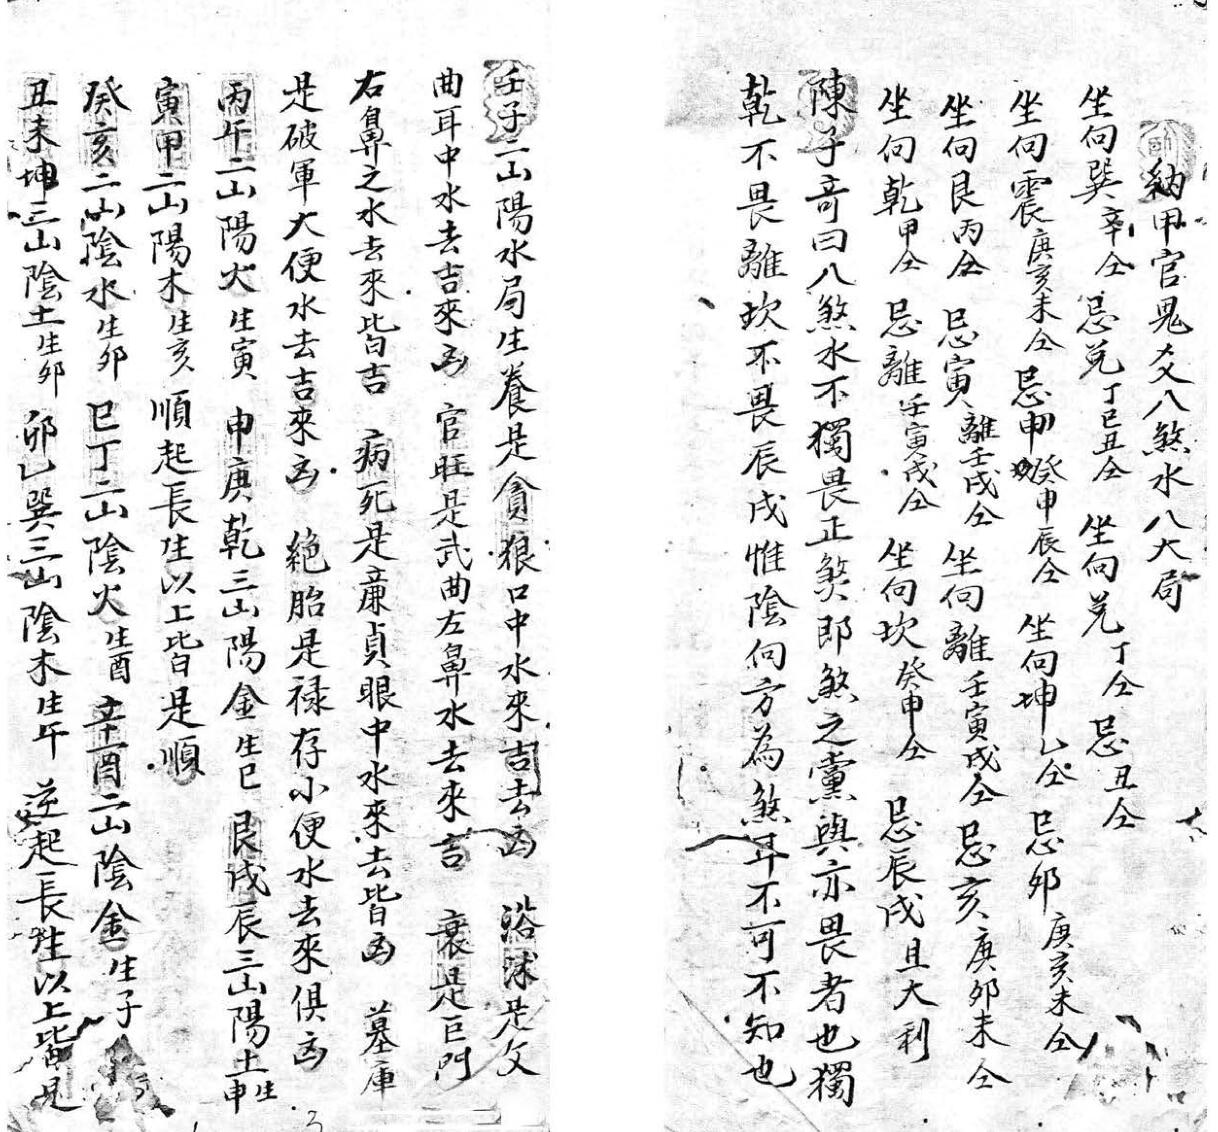 納甲官鬼爻八煞水八大局
坐向巽辛仝忌兌丁巳丑仝 坐向兌丁仝忌丑仝
坐向震庚亥未仝忌申癸申辰仝 坐向坤乙仝忌卯庚亥未仝
坐向艮丙仝忌寅離壬戌仝 坐向離壬寅戌仝忌亥庚卯未仝
坐向乾甲仝忌離壬寅戌仝 坐向坎癸申仝忌辰戌且大利
陳子奇曰八煞水不獨畏正煞即煞之黨與亦畏者也獨
乾不畏離坎不畏辰戌惟陰向方為煞耳不可不知也
壬子二山陽水局生養是貪狼口中水來吉去凶 浴沐是文
曲耳中水去吉來凶 官旺是武曲左鼻水去來吉 衰是巨門
右鼻之水去來皆吉 病死是廉貞眼中水來去皆凶 墓庫
是破軍大便水去吉來凶 絕胎是祿存小便水去來俱凶
丙午二山陽火生寅 申庚乾三山陽金生巳 艮戌辰三山陽土生申
寅甲二山陽木生亥 順起長生以上皆是順
癸亥二山陰水生卯 巳丁二山陰火生酉 辛酉二山陰金生子
丑未坤三山陰土生卯 卯乙巽三山陰木生午 逆起長生以上皆是